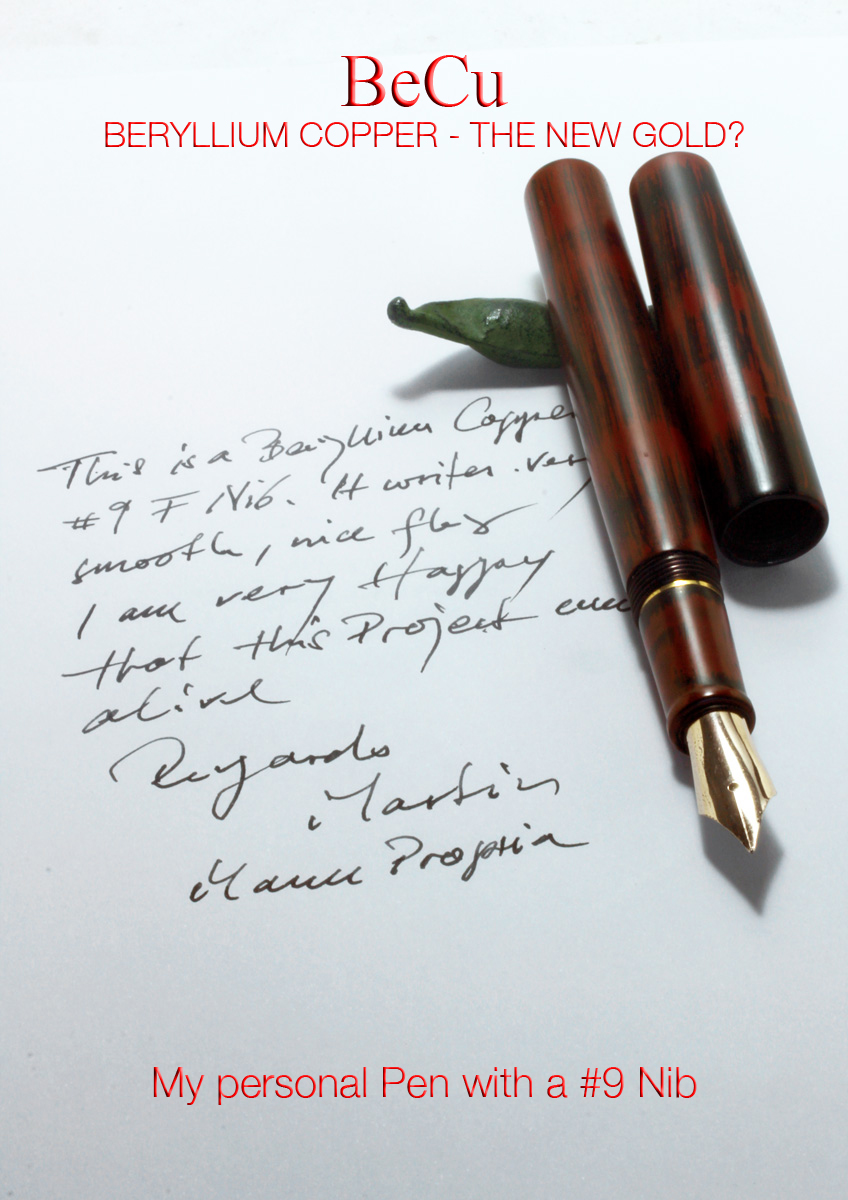 BeCu
BERYLLIUM COPPER - THE NEW GOLD?
This is a Beryllium Copper
#9 F Nib. It writes very
smooth, nice flex
I am very Happy
that this Project
alive
Regards
Martin
Manu Propria
My personal Pen with a #9 Nib